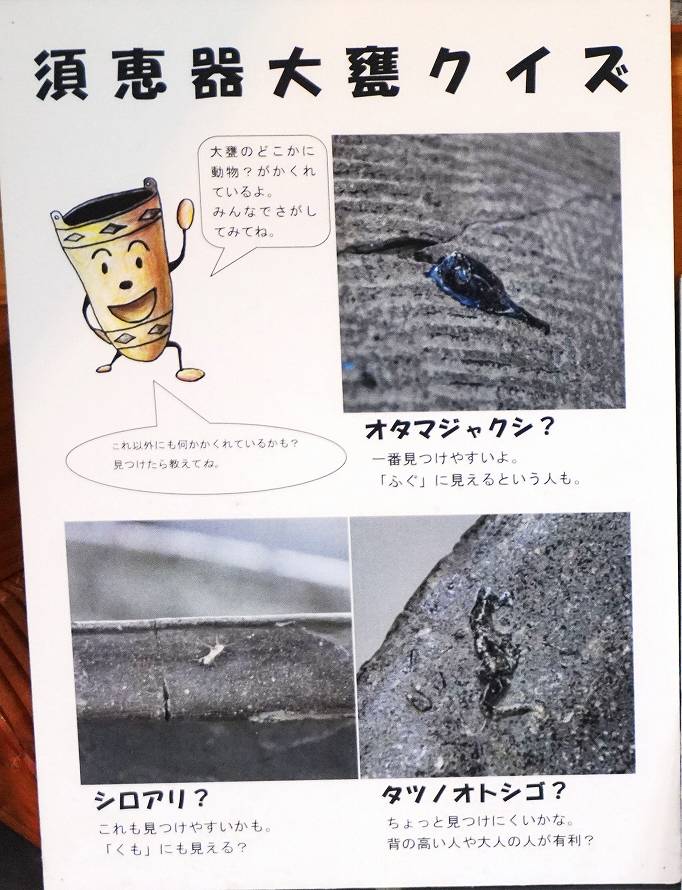 須恵器大甕クイズ
大甕のどこかに
動物？がかくれ
ているよ。
みんなでさがし
てみてね。
これ以外にも何かかくれているかも？
見つけたら教えてね。
オタマジャクシ？
一番見つけやすいよ。
「ふぐ」に見えるという人も。
シロアリ？
これも見つけやすいかも。
「くも」にも見える？
タツノオトシゴ？
ちょっと見つけにくいかな。
背の高い人や大人の人が有利？